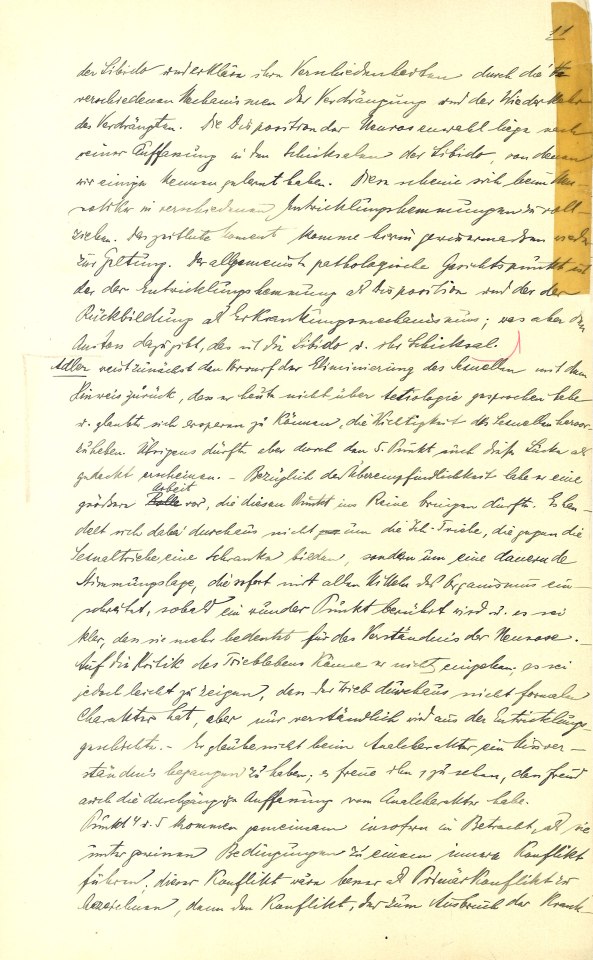 11
der Libido und erkläre ihre Verschiedenheiten durch die
verschiedenen Mechanismen der Verdrängung und der Wiederkehr
des Verdrängten. Die Disposition der Neurosenwahl liege nach
seiner Auffassung in den Schicksalen der Libido, von denen
wir einige kennen gelernt haben. Diese scheine sich beim Neu-
rotiker in verschiedenen Entwicklungshemmungen zu voll-
ziehen. Das zeitliche Moment komme hierin gewissermaßen wieder
zur Geltung. Der allgemeinste pathologische Gesichtspunkt ist
der der Entwicklungshemmung als Disposition und der der
Rückbildung als Erkrankungsmechanismus; was aber den
Anstoss dazu gibt, das ist die Libido u. ihr Schicksal.
Adler weist zunächst den Vorwurf der Eliminierung des Sexuellen mit dem
Hinweis zurück, dass er heute nicht über gesprochen habe
u. glaubte sich ersparen zu können, die Wichtigkeit des Sexuellen hervor-
zuheben. Übrigens dürfte aber durch den 5. Punkt auch diese Lücke als
gedeckt erscheinen. – Bezüglich der Überempfindlichkeit habe er eine
größere Arbeit vor, die diesen Punkt ins Reine bringen dürfte. Es han-
delt sich dabei durchaus nicht um die Ich-Triebe, die gegen die
Sexualtriebe eine Schranke bilden, sondern um eine dauernde
Stimmungslage, die sofort mit allen Mitteln des Organismus ein-
schreitet, sobald ein wunder Punkt berührt wird u. es sei
klar, dass sie mehr bedeutet für das Verständnis der Neurose. –
Auf die Kritik des Trieblebens könne er nicht eingehen, es sei
jedoch leicht zu zeigen, dass der Trieb durchaus nicht formalen
Charakter hat, aber nur verständlich wird aus der Entwicklungs-
geschichte. – Er glaube nicht beim Analcharakter ein Missver-
ständnis begangen zu haben; es freue ihn zu sehen, dass Freud
auch die durchgängige Auffassung vom Analcharakter habe.
Punkt 4 u. 5 kommen gemeinsam insofern in Betracht, als sie
unter gewissen Bedingungen zu einem innern Konflikt
führen; dieser Konflikt wäre besser als Primärkonflikt zu
bezeichnen, denn den Konflikt, der zum Ausbruch der Krank-